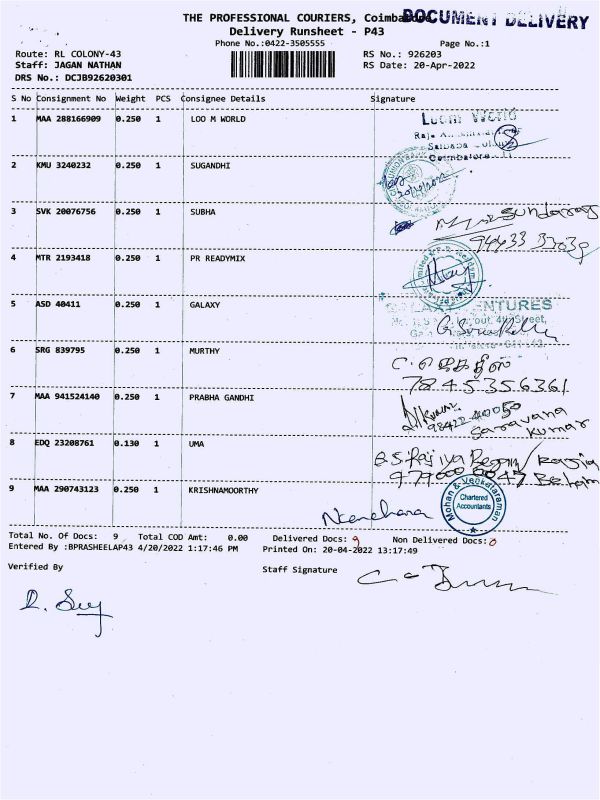 THE PROFESSIONAL COURIERS, Coimbatore
DOCUMENT DELIVERY
Delivery Runsheet - P43
Phone No.:0422-3505555
Page No.:1
Route: RL COLONY-43
RS No.: 926203
Staff: JAGAN NATHAN
RS Date: 20-Apr-2022
DRS No.: DCJB92620301
S No Consignment No Weight PCS Consignee Details Signature
1 MAA 288166909 0.250 1 LOO M WORLD
Coimbatore
2 KMU 3240232 0.250 1 SUGANDHI
3 SVK 20076756 0.250 1 SUBHA
Sundaraj
4 MTR 2193418 0.250 1 PR READYMIX
5 ASD 40411 0.250 1 GALAXY
GALAXY VENTURES
6 SRG 839795 0.250 1 MURTHY
7845356361
7 MAA 941524140 0.250 1 PRABHA GANDHI
Saravana
Kumar
8 EDQ 23208761 0.130 1 UMA
9 MAA 290743123 0.250 1 KRISHNAMOORTHY
Mohan & Venkataraman
Chartered
Accountants
Total No. Of Docs: 9 Total COD Amt: 0.00 Delivered Docs: 9 Non Delivered Docs: 0
Entered By :BPRASHEELAP43 4/20/2022 1:17:46 PM Printed On: 20-04-2022 13:17:49
Verified By
Staff Signature